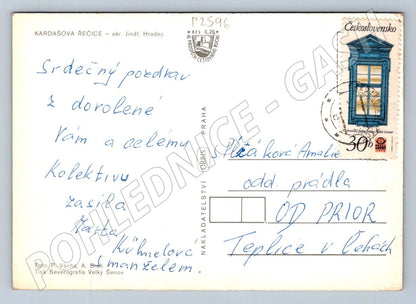 KARDAŠOVA ŘEČICE - okr. Jindř. Hradec
P2596
Kčs 0,20
Československo
30h
Srdečný pozdrav
z dovolené
Vám a celému
kolektivu
zasílá
s manželem.
Foto P. Vácha, A.
Tisk Severografia Velký Šenov
NAKLADATELSTVÍ ORBIS PRAHA
Amalie
odd. prádla
OD PRIOR
Teplice v Čechách
POHLEDNICE - GASH